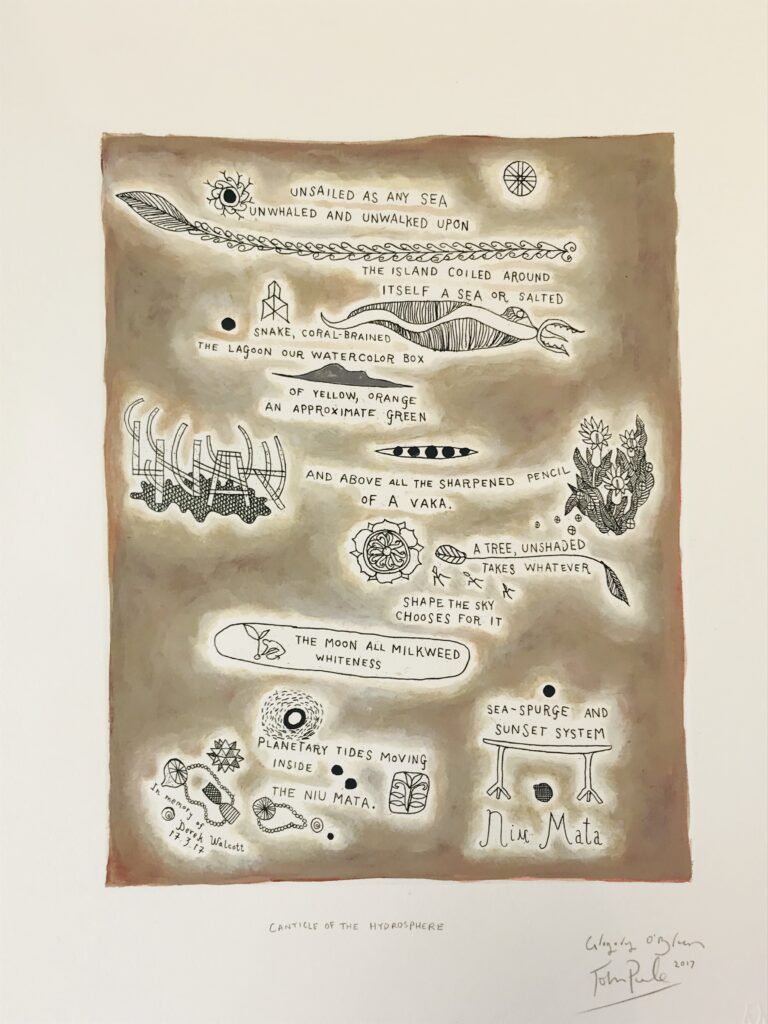 UNSAILED AS ANY SEA
UNWHALED AND UNWALKED UPON
THE ISLAND COILED AROUND
ITSELF A SEA OR SALTED
SNAKE, CORAL-BRAINED
THE LAGOON OUR WATERCOLOR BOX
OF YELLOW, ORANGE
AN APPROXIMATE GREEN
AND ABOVE ALL THE SHARPENED PENCIL
OF A VAKA.
A TREE, UNSHADED
TAKES WHATEVER
SHAPE THE SKY
CHOOSES FOR IT
THE MOON ALL MILKWEED
WHITENESS
SEA-SPURGE AND
SUNSET SYSTEM
PLANETARY TIDES MOVING
INSIDE
THE NIU MATA.
In memory of
Derek Walcott
17.3.17
Niu Mata
CANTICLE OF THE HYDROSPHERE
Gregory O'Brien
John Pule 2017